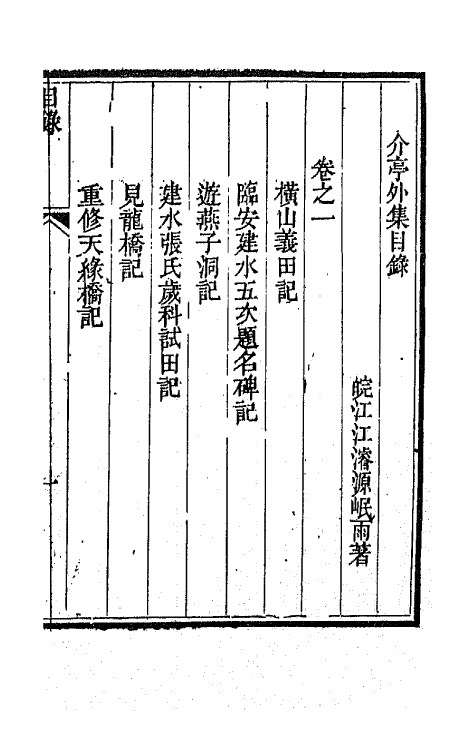 介亭外集目錄
皖江江濬源岷雨著
卷之一
橫山義田記
臨安建水五次題名碑記
遊燕子洞記
建水張氏歲科試田記
見龍橋記
重修天緣橋記
目錄
一